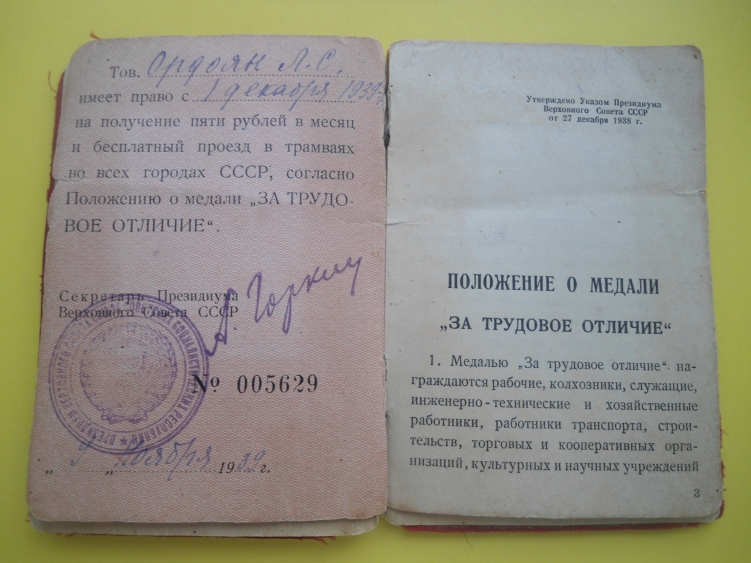 Тов. Ордоян Л. С.
имеет право с 1 декабря 1939 г.
на получение пяти рублей в месяц
и бесплатный проезд в трамваях
во всех городах СССР, согласно
Положению о медали „ЗА ТРУДО-
ВОЕ ОТЛИЧИЕ“.
Секретарь Президиума
Верховного Совета СССР
А. Горкин
№ 005629
„9“ ноября 1939 г.
Утверждено Указом Президиума
Верховного Совета СССР
от 27 декабря 1938 г.
ПОЛОЖЕНИЕ О МЕДАЛИ
„ЗА ТРУДОВОЕ ОТЛИЧИЕ“
1. Медалью „За трудовое отличие“ на-
граждаются рабочие, колхозники, служащие,
инженерно-технические и хозяйственные
работники, работники транспорта, строи-
тельств, торговых и кооперативных орга-
низаций, культурных и научных учреждений
3